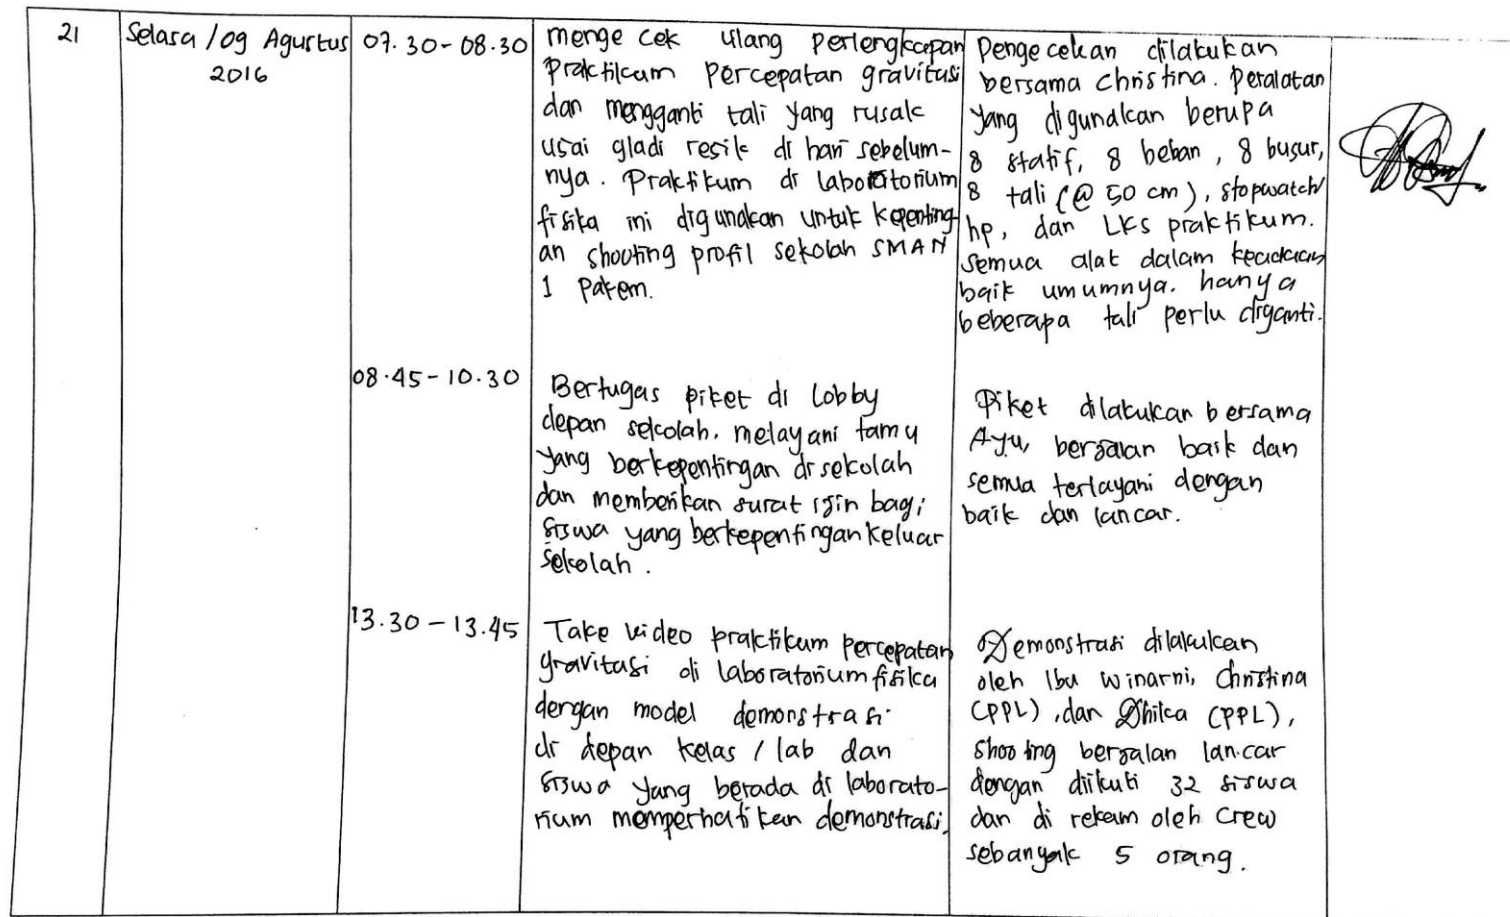 21
Selasa / 09 Agustus
2016
07.30 - 08.30
mengecek ulang perlengkapan
praktikum percepatan gravitasi
dan mengganti tali yang rusak
usai gladi resik di hari sebelum-
nya. Praktikum di laboratorium
fisika ini digunakan untuk kepenting-
an shooting profil sekolah SMAN
1 Pakem.
Pengecekan dilakukan
bersama Christina. Peralatan
yang digunakan berupa
8 statif, 8 beban, 8 busur,
8 tali (@ 50 cm), stopwatch/
hp, dan LKS praktikum.
Semua alat dalam keadaan
baik umumnya. hanya
beberapa tali perlu diganti.
08.45 - 10.30
Bertugas piket di lobby
depan sekolah, melayani tamu
yang berkepentingan di sekolah
dan memberikan surat ijin bagi
siswa yang berkepentingan keluar
sekolah.
Piket dilakukan bersama
Ayu, berjalan baik dan
semua terlayani dengan
baik dan lancar.
13.30 - 13.45
Take video praktikum percepatan
gravitasi di laboratorium fisika
dengan model demonstrasi
di depan kelas / lab dan
siswa yang berada di laborato-
rium memperhatikan demonstrasi.
Demonstrasi dilakukan
oleh Ibu Winarni, Christina
(PPL), dan Dhika (PPL),
shooting berjalan lancar
dengan diikuti 32 siswa
dan di rekam oleh crew
sebanyak 5 orang.